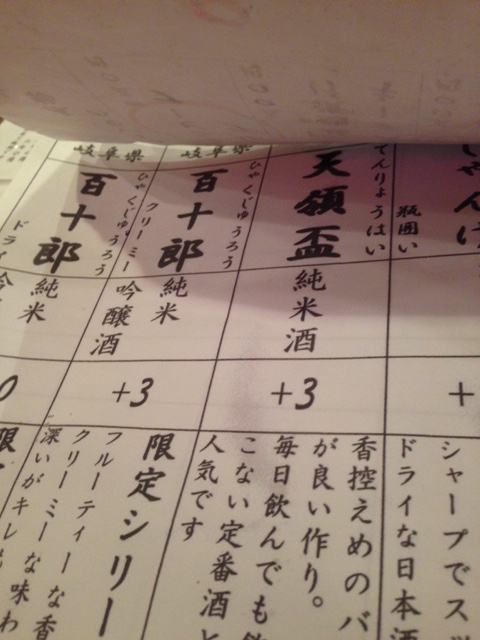 瓶囲い
+
シャープでス
ドライな日本酒
てんりょうはい
天領盃
純米酒
+3
香控えめのバ
が良い作り。
毎日飲んでも
こない定番酒と
人気です
岐阜県
ひゃくじゅうろう
百十郎
クリーミー
純米
吟醸酒
+3
限定シリー
フルーティーな香
クリーミーな味わ
深いがキレ
岐阜県
ひゃくじゅうろう
百十郎
ドライ
純米
吟
0
限